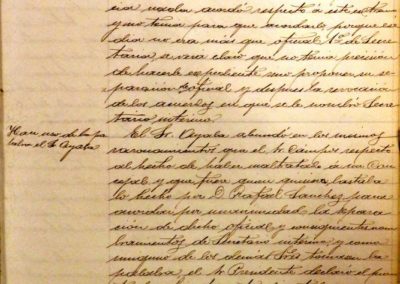 resolver acordó respecto á este extremo
y no tenia para que acordarlo, porque ese
dia no era más que oficial 1º de Secre-
taria, se veia claro que no tenia precisión
de hacerle expediente sino proponer su se-
paración de oficial y despues la revocación
de los acuerdos en que se le nombró Secre-
tario interino.
Hace uso de la pa-
labra el Sr. Ayala
El Sr. Ayala abundó en los mismos
razonamientos que el Sr. Campos respecto
al hecho de haber maltratado á un Con-
cejal y que fuera quien quisiera, bastaba
lo hecho por D. Rafael Sanchez para
acordar por unanimidad la separa-
ción de dicho oficial y consiguiente nom-
bramientos de Secretario interino; y como
ninguno de los demás Sres. tomasen la
palabra, el Sr. Presidente declaró el pun-